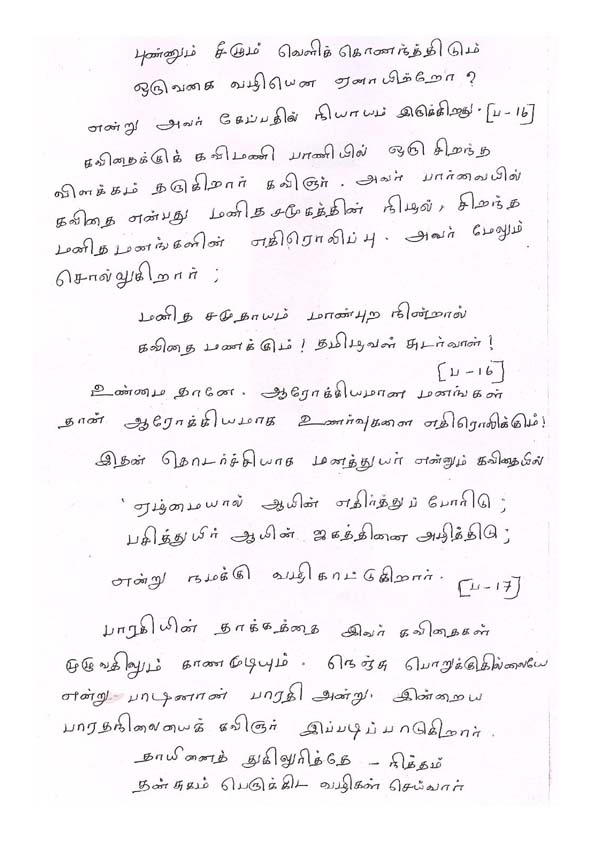 புண்ணும் சீழும் வெளிக் கொணர்ந்திடும்
ஒருவகை வழியென ஏனாயிற்றோ ?
என்று அவர் கேட்பதில் நியாயம் இருக்கிறது. [ப - 16]
கவிதைக்குக் கவிமணி பாணியில் ஒரு சிறந்த
விளக்கம் தருகிறார் கவிஞர். அவர் பார்வையில்
கவிதை என்பது மனித சமூகத்தின் நிழல், சிறந்த
மனித மனங்களின் எதிரொலிப்பு. அவர் மேலும்
சொல்லுகிறார் ;
மனித சமுதாயம் மாண்புற நின்றால்
கவிதை மணக்கும் ! தமிழவள் சுடர்வாள் !
[ப - 16]
உண்மை தானே. ஆரோக்கியமான மனங்கள்
தான் ஆரோக்கியமாக உணர்வுகளை எதிரொலிக்கும் !
இதன் தொடர்ச்சியாக மனத்துயர் என்னும் கவிதையில்
' ஏழ்மையால் ஆயின் எதிர்த்துப் போரிடு ;
பசித்துயிர் ஆயின் ஜகத்தினை அழித்திடு ;
என்று நமக்கு வழிகாட்டுகிறார். [ப - 17]
பாரதியின் தாக்கத்தை இவர் கவிதைகள்
முழுவதிலும் காணமுடியும். நெஞ்சு பொறுக்குதில்லையே
என்று பாடினான் பாரதி அன்று. இன்றைய
பாரதநிலையைக் கவிஞர் இப்படிப் பாடுகிறார்.
தாயினைத் துகிலுரித்தே - நித்தம்
தன்சுகம் பெருக்கிட வழிகள் செய்வார்